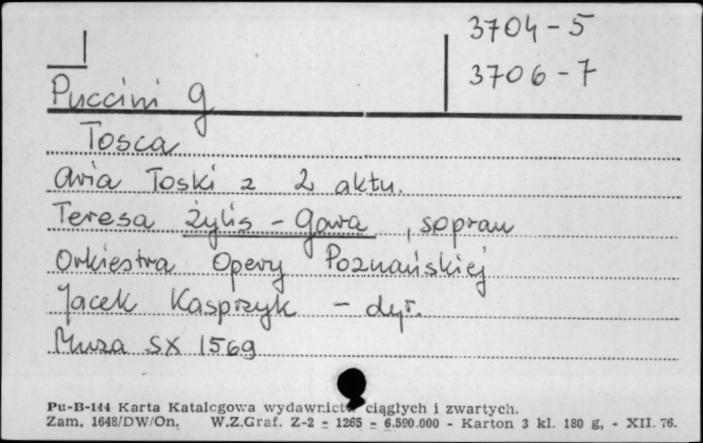 3704-5
3706-7
Puccini G
Tosca
Aria Toski z 2 aktu.
Teresa Żylis-Gara, sopran
Orkiestra Opery Poznańskiej
Jacek Kasprzyk - dyr.
Muza SX 1569
Pu-B-144 Karta Katalogowa wydawnictw ciągłych i zwartych.
Zam. 1648/DW/On. W.Z.Graf. Z-2 z 1265 z 6.590.000 - Karton 3 kl. 180 g, - XII. 76.